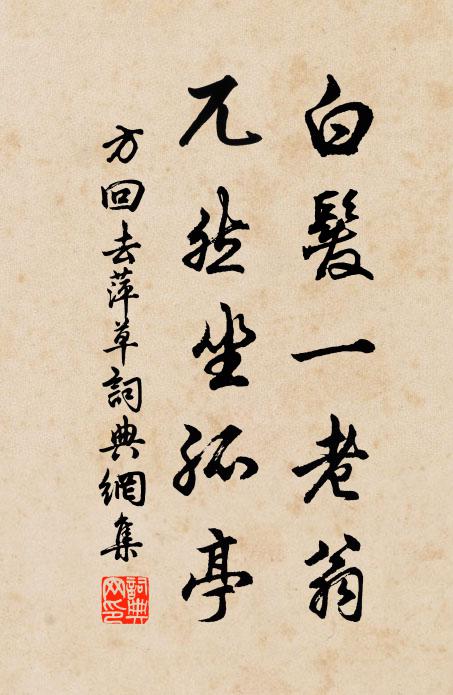 白髮一老翁
兀然坐孤亭
方回去萍草詞典網集
詞典網印